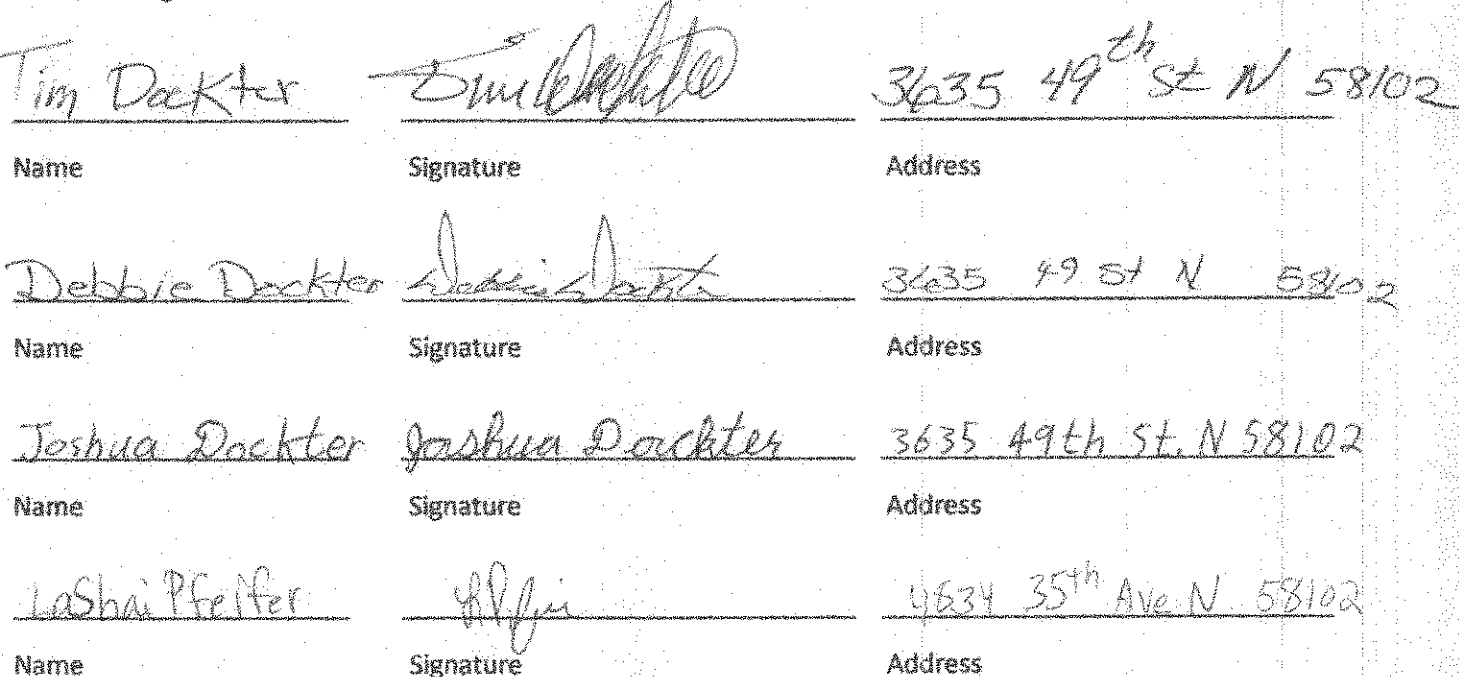 Tim Dockter Tim Dockter 3635 49th St N 58102
Name Signature Address
Debbie Dockter Debbie Dockter 3635 49 St N 58102
Name Signature Address
Joshua Dockter Joshua Dockter 3635 49th St. N 58102
Name Signature Address
LaShai Pfeifer 4834 35th Ave N 58102
Name Signature Address